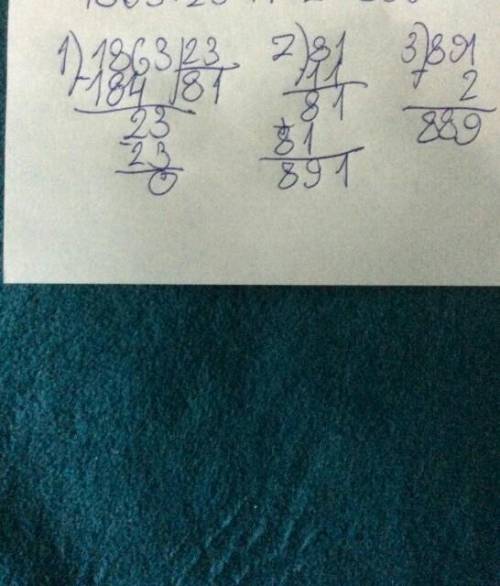 1) 1863 | 23
- 184 | 81
23
- 23
0
2) 81
11
81
+ 81
891
3) 891
- 2
889